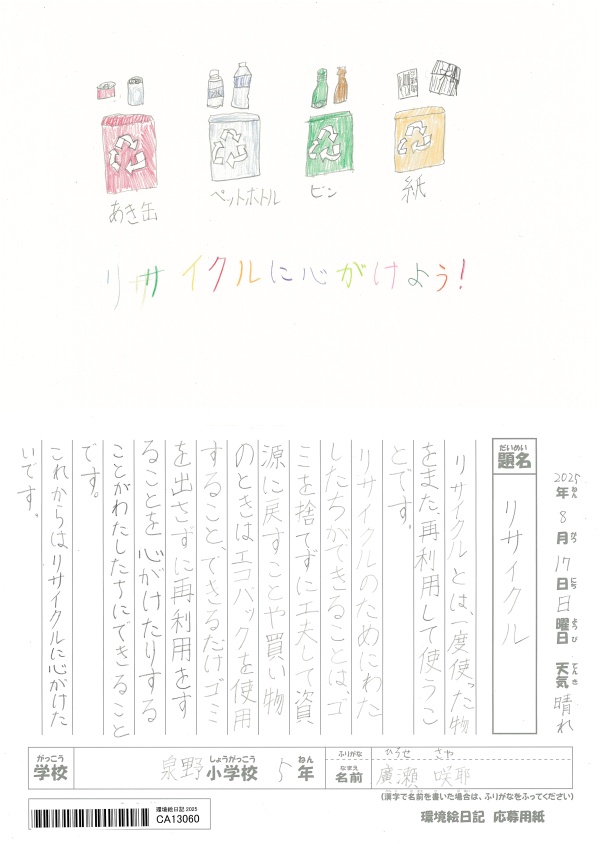 あき缶
ペットボトル
ビン
紙
リサイクルに心がけよう!
2025年ねん8月がつ17日にち日曜日ようび 天気てんき 晴れ
だいめい
題名
リサイクル
リサイクルとは、一度使った物
をまた、再利用して使うこ
とです。
リサイクルのためにわた
したちができることは、ゴ
ミを捨てずに工夫して資
源に戻すことや買い物
のときはエコバックを使用
すること、できるだけゴミ
を出さずに再利用をす
ることを心がけたりする
ことがわたしたちにできること
です。
これからはリサイクルに心がけた
いです。
がっこう
学校
泉野小学校しょうがっこう 5年ねん
ふりがな
ひろせ さや
なまえ
名前
廣瀬 咲耶
(漢字で名前を書いた場合は、ふりがなをふってください)
環境絵日記 2025
CA13060
環境絵日記 応募用紙